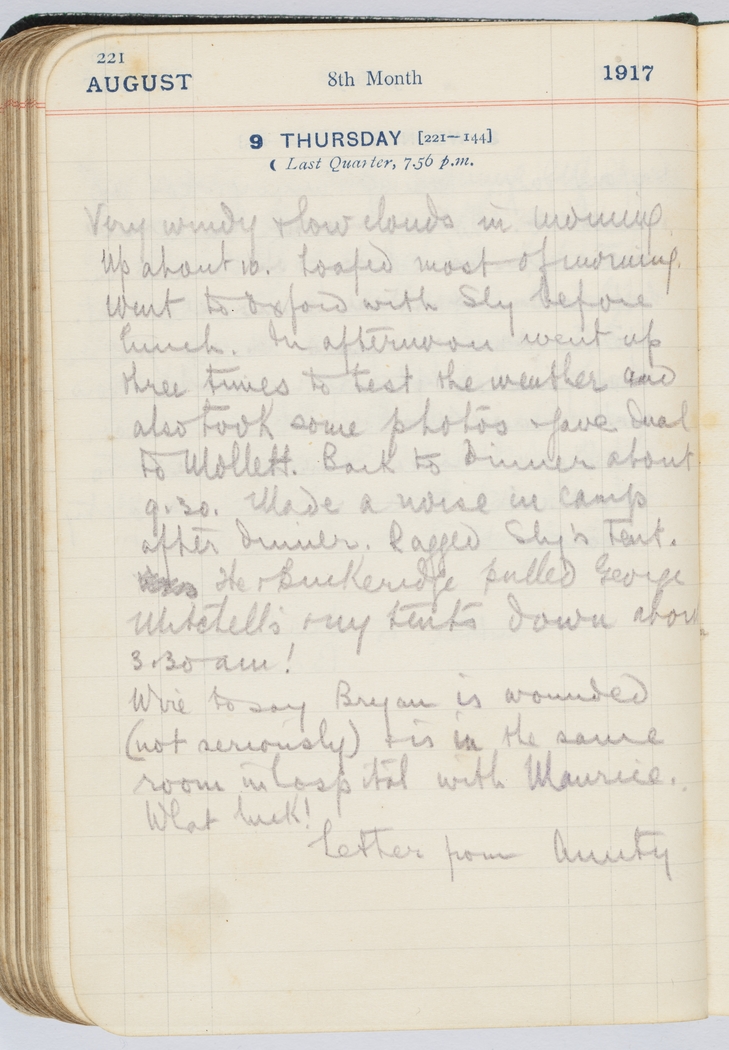 221
AUGUST 8th Month 1917
9 THURSDAY [221—144]
☾ Last Quarter, 7.56 p.m.
Very windy & low clouds in morning.
Up about 10. Loafed most of morning.
Went to Oxford with Sly before
lunch. In afternoon went up
three times to test the weather and
also took some photos & gave dual
to Mollett. Back to Dinner about
9.30. Made a noise in camp
after dinner. Ragged Sly's Tent.
He & Buckeridge pulled George
Mitchell's & my tents down about
3.30 am!
Wire to say Bryan is wounded
(not seriously) & is in the same
room in hospital with Maurice.
What luck!
Letter from Aunty